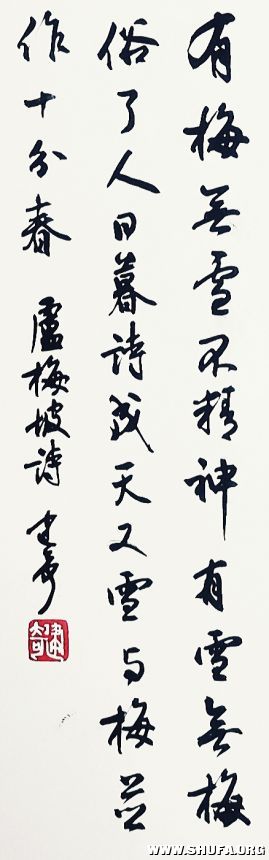 有梅無雪不精神有雪無梅
俗了人日暮詩成天又雪与梅並
作十分春 盧梅坡詩
WWW.SHUFA.ORG